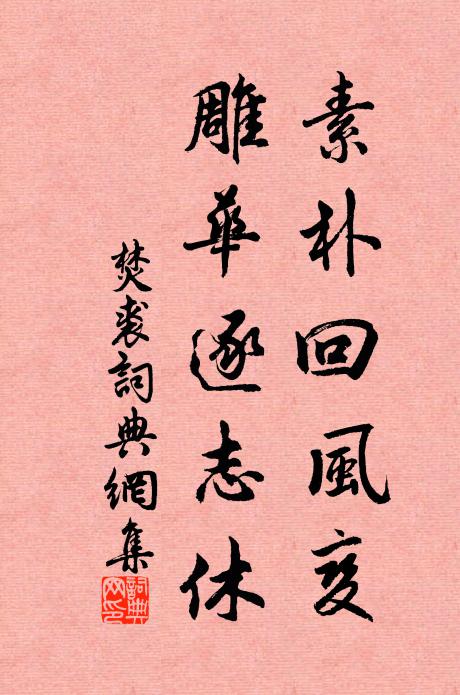 素朴回風变
雕華逐志休
焚裘詞典網集
詞典
网印